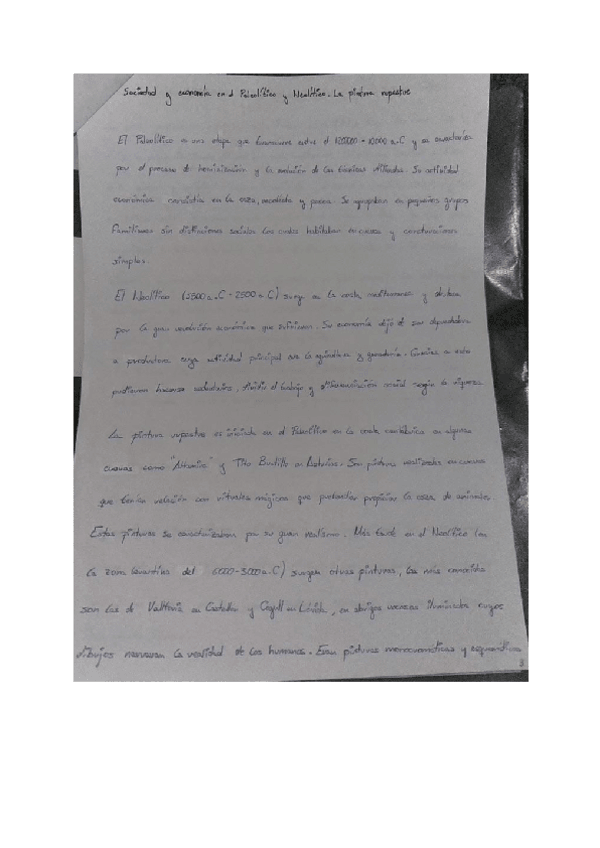 Sociedad y economía en el Paleolítico y Neolítico. La pintura rupestre
El Paleolítico es una etapa que transcurre entre el 1200000 - 10000 a.C y se caracteriza
por el proceso de hominización y la evolución de las técnicas utilizadas. Su actividad
económica consistía en la caza, recolecta y pesca. Se agrupaban en pequeños grupos
familiares sin distinciones sociales los cuales habitaban en cuevas y construcciones
simples.
El Neolítico (5500 a.C - 2500 a.C) surge en la costa mediterranea y destaca
por la gran revolución económica que sufrieron. Su economía dejó de ser depredadora
a productora cuya actividad principal era la agricultura y ganadería. Gracias a esto
pudieron hacerse sedentarios, dividir el trabajo y diferenciación social según la riqueza.
La pintura rupestre es iniciada en el Paleolítico en la costa cantábrica en algunas
cuevas como "Altamira" y Tito Bustillo en Asturias. Son pinturas realizadas en cuevas
que tenían relación con rituales mágicos que pretendían propiciar la caza de animales.
Estas pinturas se caracterizaban por su gran realismo. Más tarde en el Neolítico (en
la zona levantina del 6000-3000 a.C) surgen otras pinturas, las más conocidas
son las de Valltorta en Castellón y Cogull en Lérida, en abrigos rocosos iluminados cuyos
dibujos marcaban la realidad de los humanos. Eran pinturas monocromáticas y esquemáticas